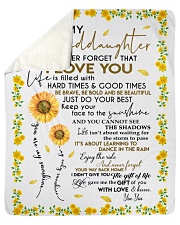 MY
ddaughter
ER FORGET THAT
I LOVE YOU
Life is filled with
HARD TIMES & GOOD TIMES
BE BRAVE, BE BOLD AND BE BEAUTIFUL
JUST DO YOUR BEST
Keep your
face to the sunshine
AND YOU CANNOT SEE
THE SHADOWS
Life isn't about waiting for
the storm to pass
IT'S ABOUT LEARNING TO
DANCE IN THE RAIN
Enjoy the ride
And never forget
YOUR WAY BACK HOME
I DIDN'T GIVE YOU the gift of life
Life gave me the GIFT OF you
WITH LOVE &